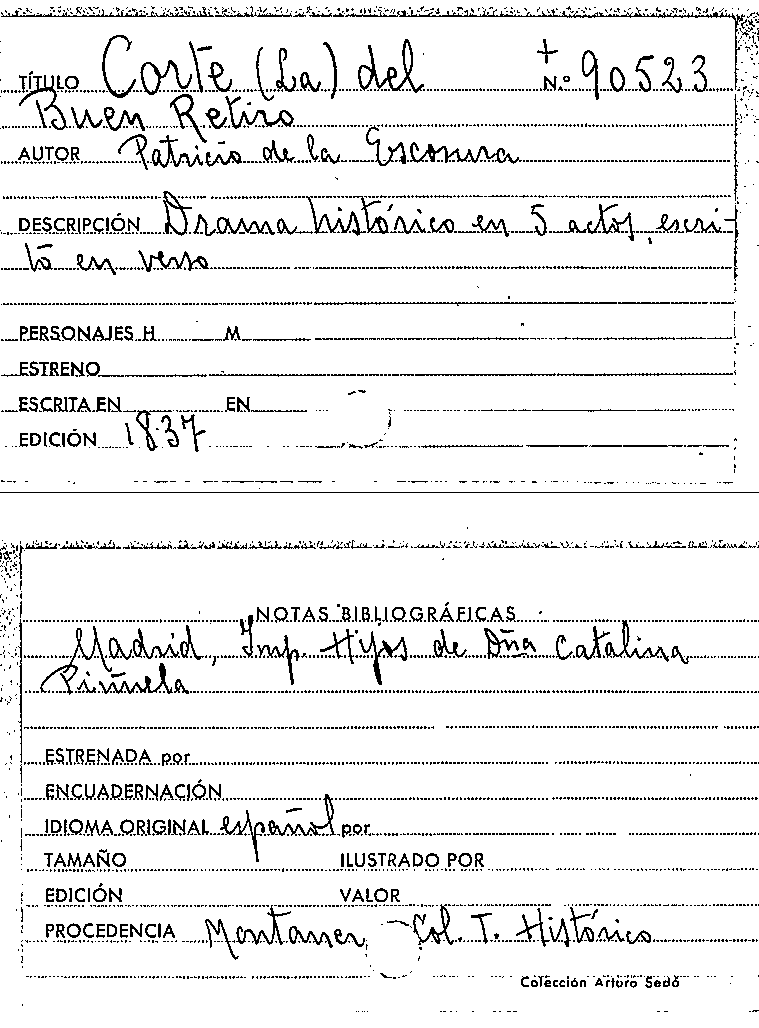 TÍTULO Corte (La) del + N.º 90523
Buen Retiro
AUTOR Patricio de la Escosura
DESCRIPCIÓN Drama histórico en 5 actos, escri-
to en verso
PERSONAJES H M
ESTRENO
ESCRITA EN EN
EDICIÓN 1837
NOTAS BIBLIOGRÁFICAS
Madrid, Imp. Hijos de Dña Catalina
Piñuela
ESTRENADA por
ENCUADERNACIÓN
IDIOMA ORIGINAL español por
TAMAÑO ILUSTRADO POR
EDICIÓN VALOR
PROCEDENCIA Montaner Col. T. Histórico
Colección Arturo Sedó